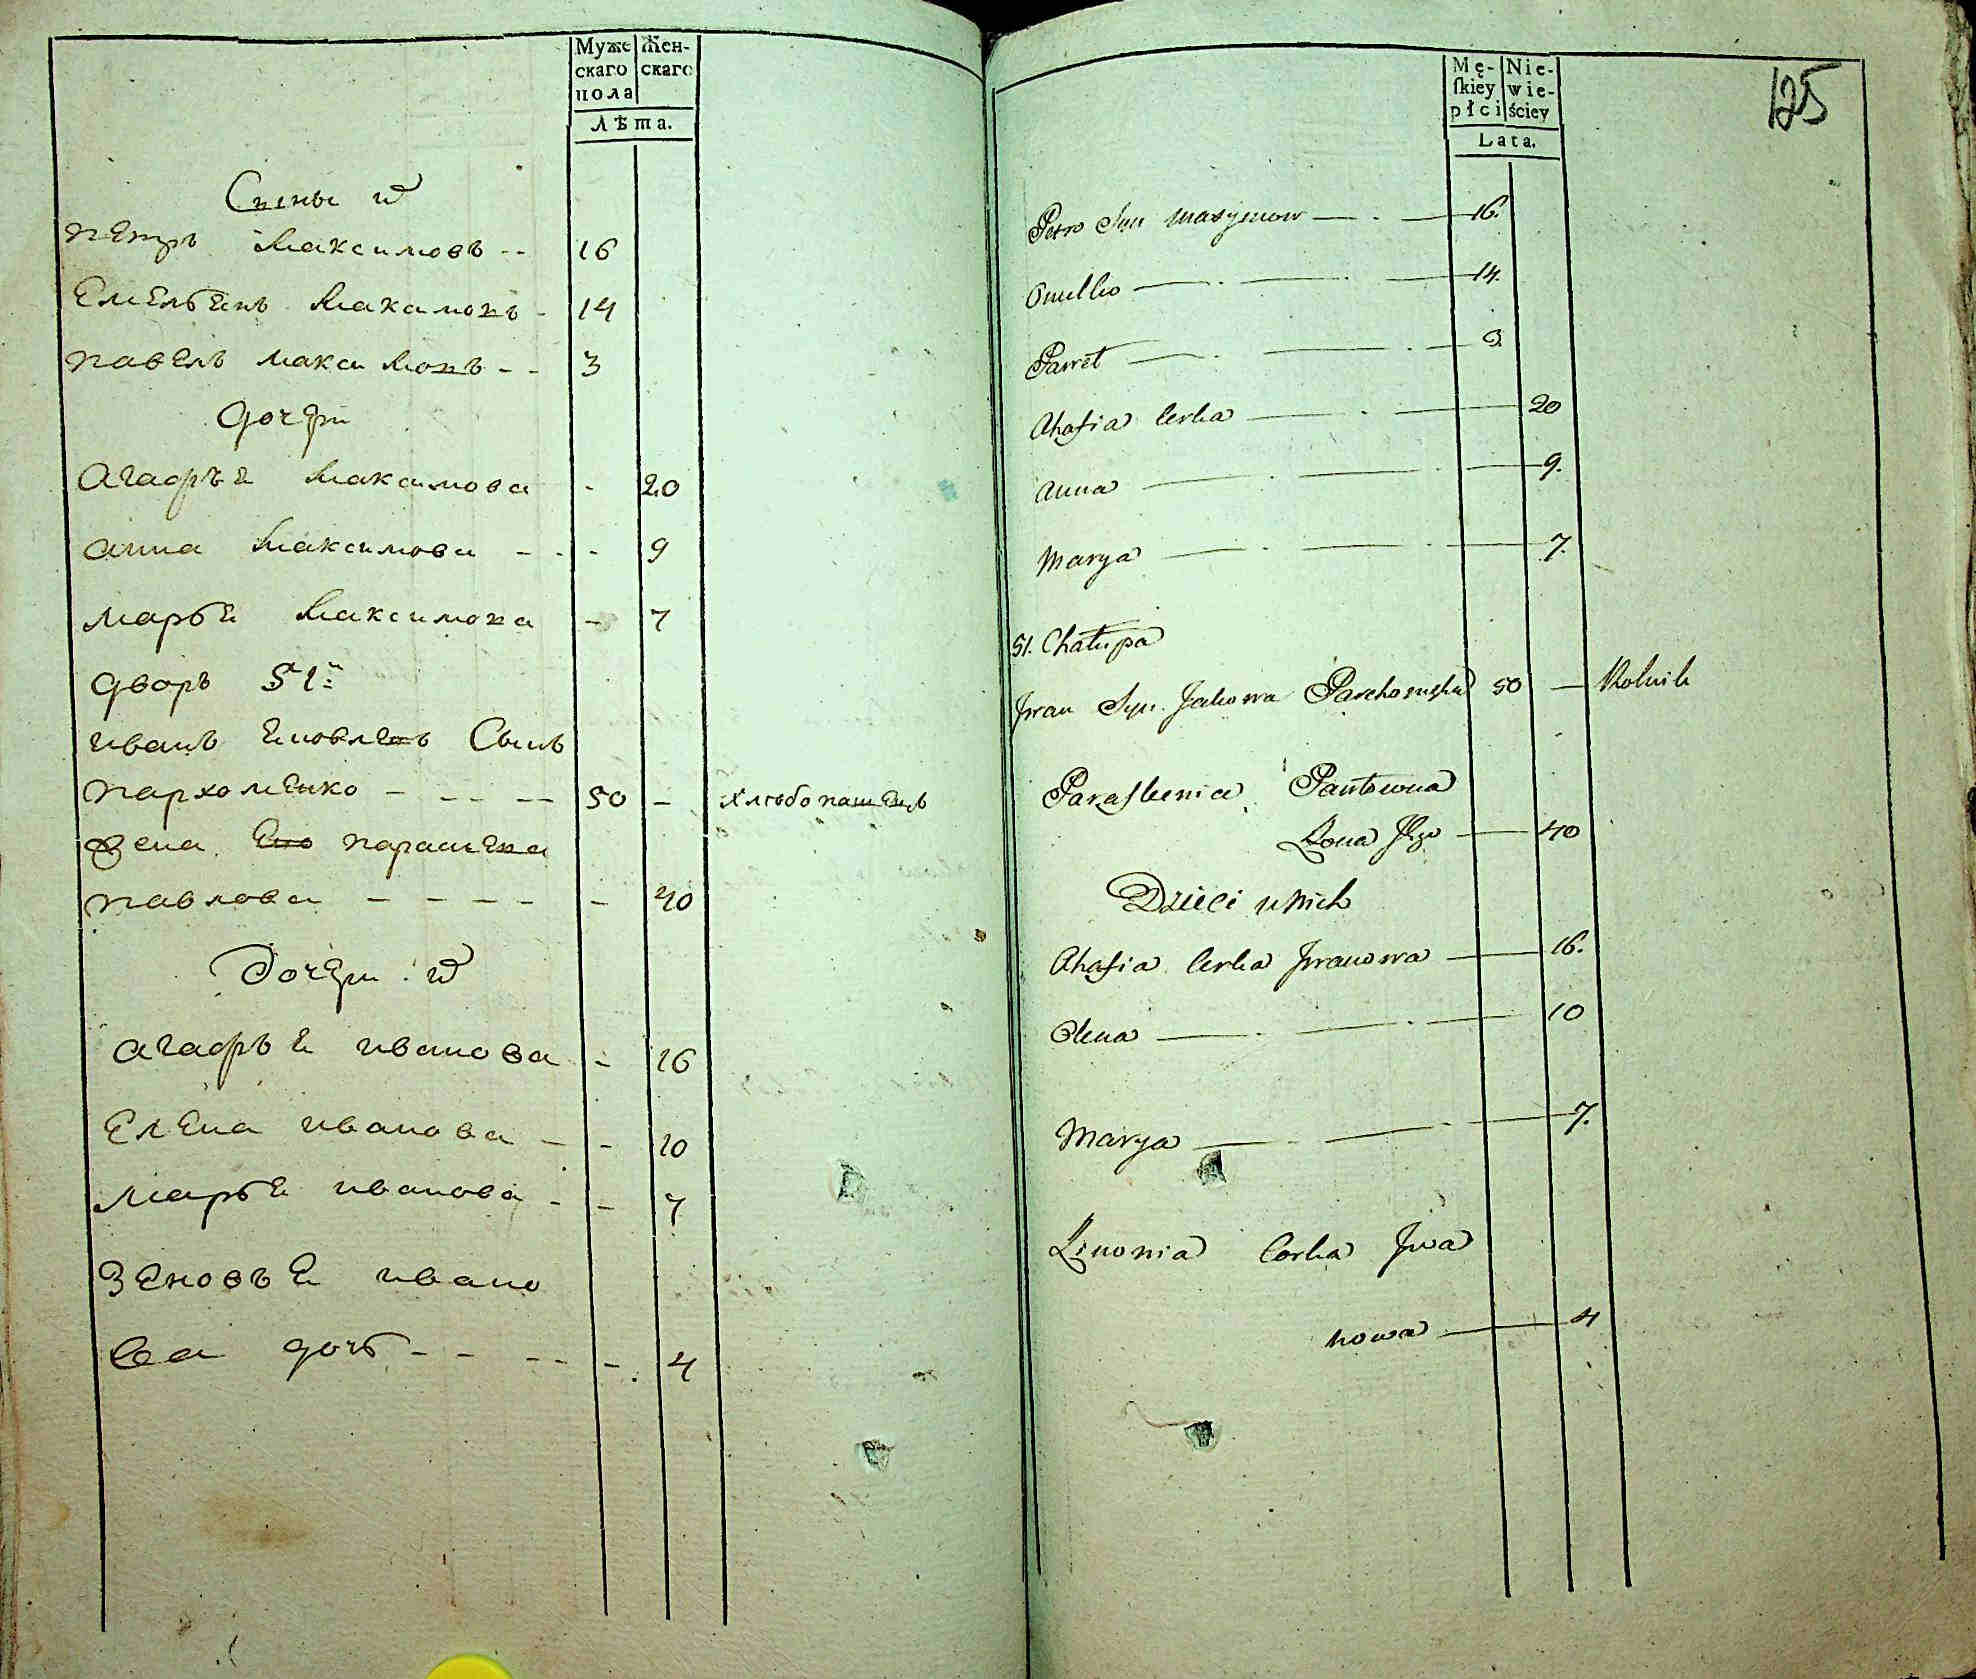 Муже
скаго
пола
Жен-
скаго
Лѣта.
Сыны и
Петръ Максимовъ -- 16
Емельенъ Максимовъ - 14
Павелъ Максимовъ -- 3
Дочери
Агафъе Максимова - 20
Анна Максимова - - - 9
Марье Максимова - 7
Дворъ 51й
Иванъ Сынъ
Пархоменко - - - - 50 - хлѣбопашецъ
Жена Его
Павлова - - - - - 40
Дочери и
Агафъе Иванова - 16
Елена Иванова - - 10
Марье Иванова - - 7
Зеновъе Ивано
ва дочь - - - - - 4
125
Mę-
skiey
płci
Nie-
wie-
ściey
Lata.
Petro Syn Maxymow — . — 16.
Omelko — . — . — 14.
Paweł — . — . — 3
Ahafia Corka — . — 20
Anna — . — . — 9.
Marya — . — . — 7.
51. Chałupa
Jwan Syn Jakowa 50 — Rolnik
Paraskewia
Żona Jego — 40
Dzieci u Nich
Ahafia Corka Jwanowa — 16.
Olena — . — . — 10
Marya — . — . — 7.
Zinowia Corka Jwa
nowa — 4